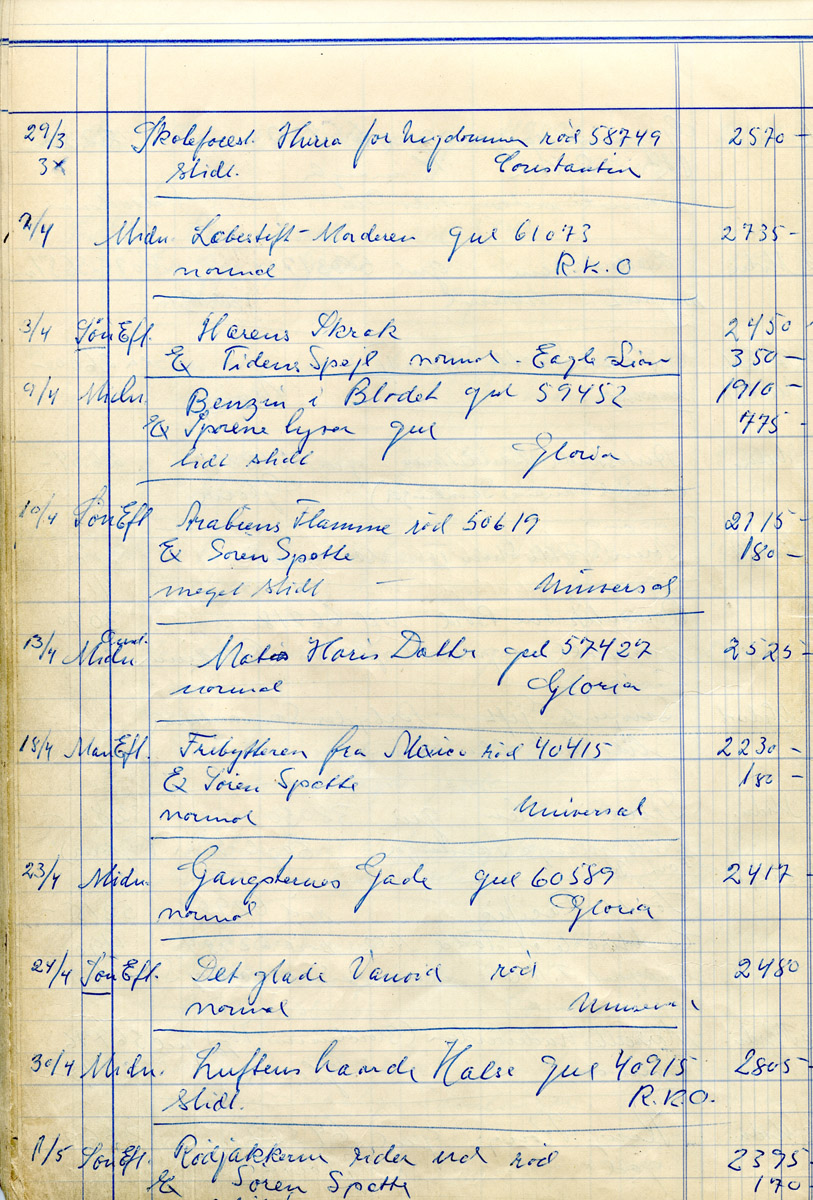 29/3 Skoleforest. Hurra for Ungdommen rød 58749 2570 -
3x slidt. Constantin
2/4 Midn. Læbestift-Morderen gul 61073 2735 -
normal R.K.O
3/4 Søn Eft. Hærens Skræk 2450
Ex Tidens Spejl normal - Eagle-Lion 350 -
9/4 Midn. Benzin i Blodet gul 59452 1910 -
Ex Sporene lyver gul 775 -
lidt slidt Gloria
10/4 Søn Eft Arabiens Flamme rød 50619 2715 -
Ex Søren Spætte 180 -
meget slidt - Universal
13/4 Midn Mata Haris Datter gul 57427 2525 -
normal Gloria
18/4 Man Eft. Fribytteren fra Mexico rød 40415 2230 -
Ex Søren Spætte 180 -
normal Universal
23/4 Midn. Gangsternes Gade gul 60589 2417 -
normal Gloria
24/4 Søn Eft. Det glade Vanvid rød 2480
normal Universal
30/4 Midn. Luftens haarde Halse gul 40915 2805 -
slidt. R.K.O.
1/5 Søn Eft. Rødjakkerne rider ud rød 2395 -
Ex Søren Spætte 170 -